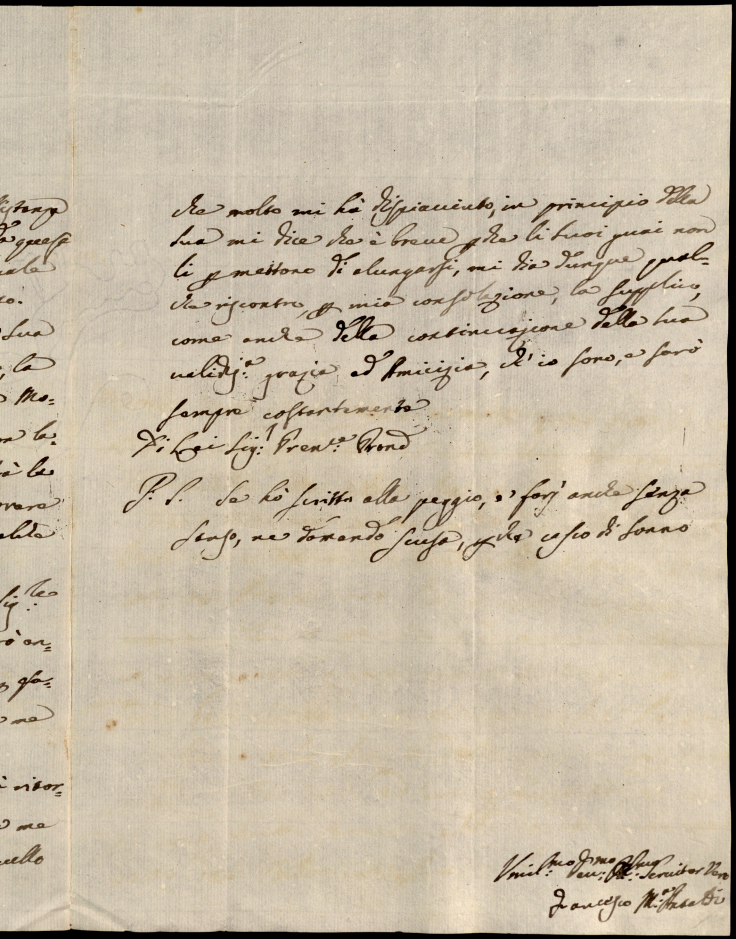 istanza
quale
Sua
la
Mo=
la=
la
overe
Sig.re
an=
me
ritor=
me
uello
che molto mi hà dispiaciuto, in principio della
sua mi dice che è breve, che li suoi guai non
li permettono di alungarsi, mi dia dunque qual=
che riscontro, per mia consolazione, la supplico,
come anche della continuazione della sua
valid.ma grazia ed Amicizia, ch'io sono, e sarò
sempre costantemente
Di Lei Sig.r
P. S. Se hò scritto alla peggio, e forsi anche senza
senso, ne domando scusa, perche casco di sonno
Umil.mo Dev.mo Servitor Vero
Francesco M.a